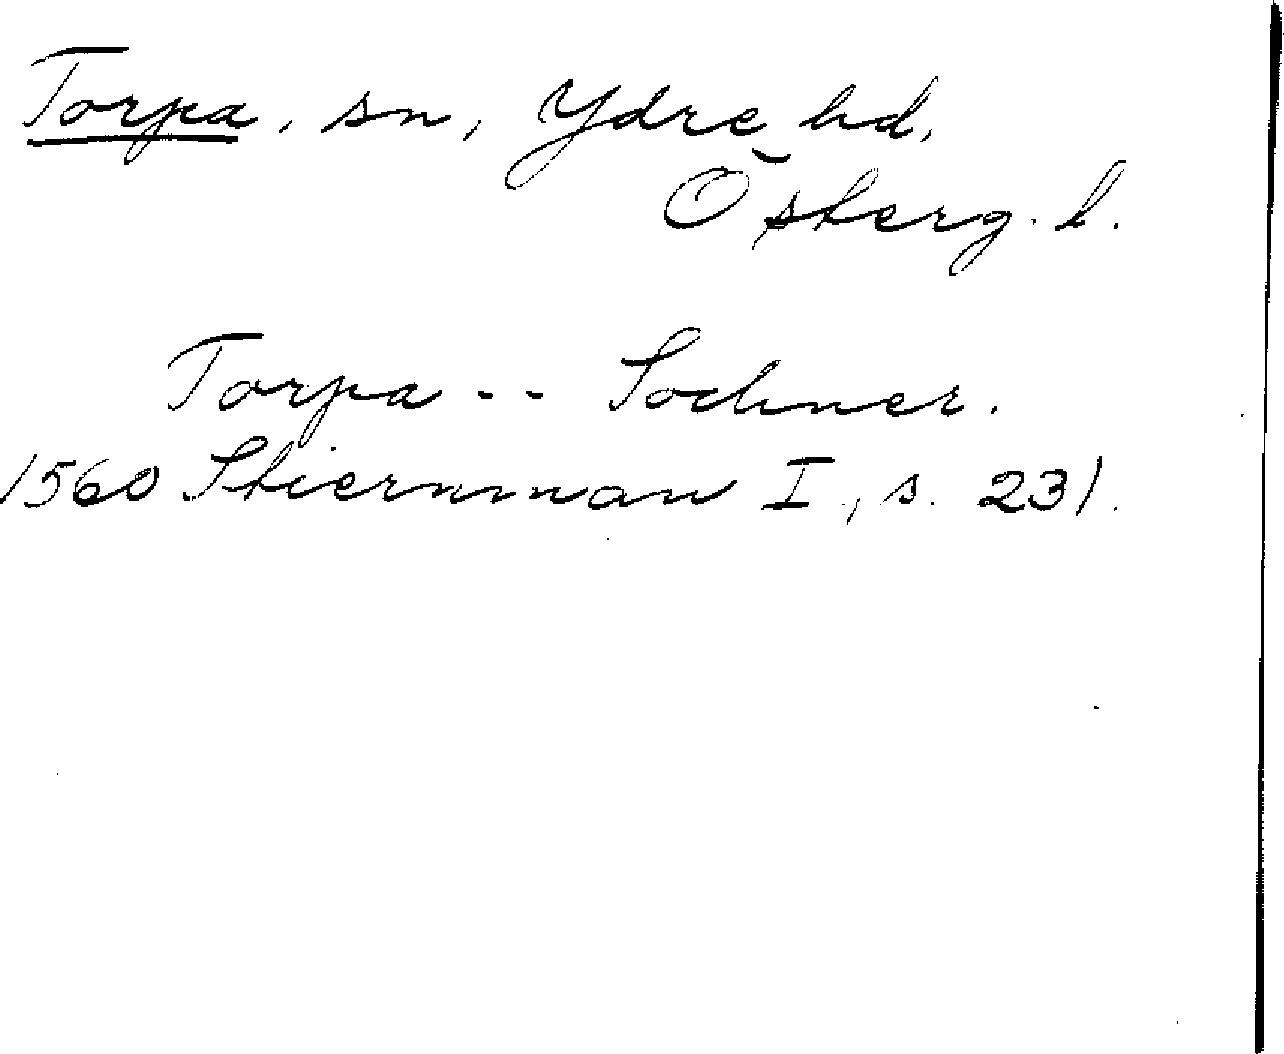 Torpa, sn, Ydre hd,
Österg. l.
Torpa -- Sochner.
1560 Stiernman I, s. 231.